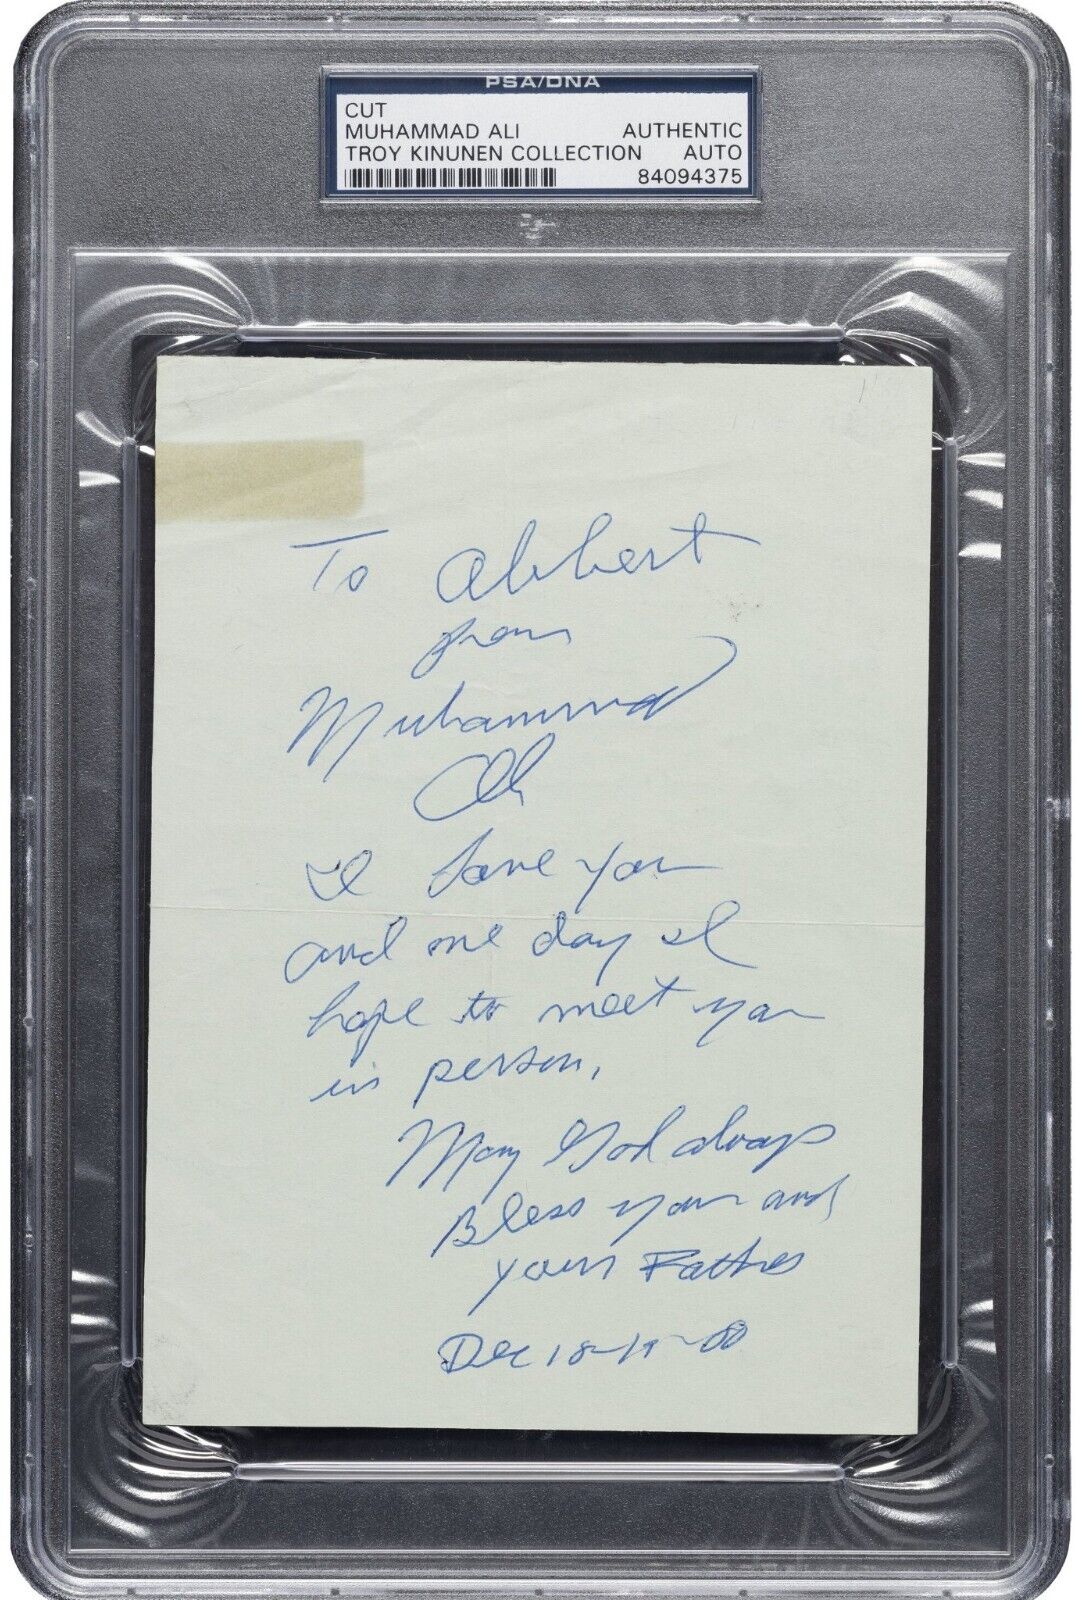 PSA/DNA
CUT
MUHAMMAD ALI AUTHENTIC
TROY KINUNEN COLLECTION AUTO
84094375
To Albert
from
Muhammad
Ali
I Love you
and one day I
hope to meet you
in person,
May God always
Bless you and
your Father
Dec 18-19-80